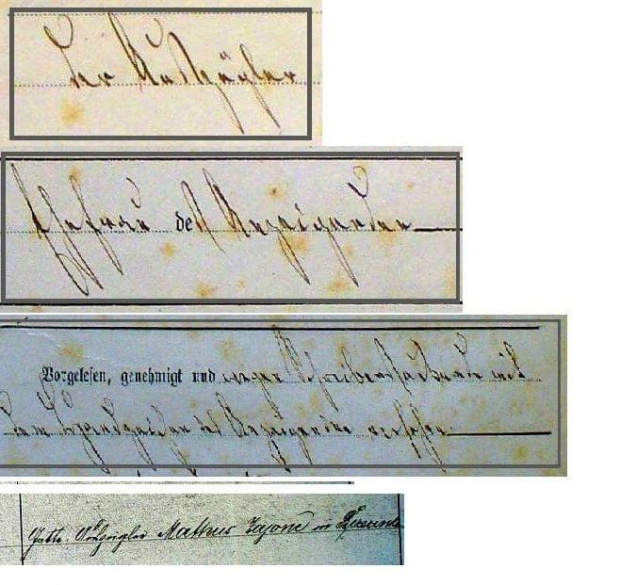 der Auszügler
Ehefrau des Anzeigenden
Vorgelesen, genehmigt und wegen Schreibensunkunde mit
dem Handzeichen des Anzeigenden versehen
Auszügler Mathus